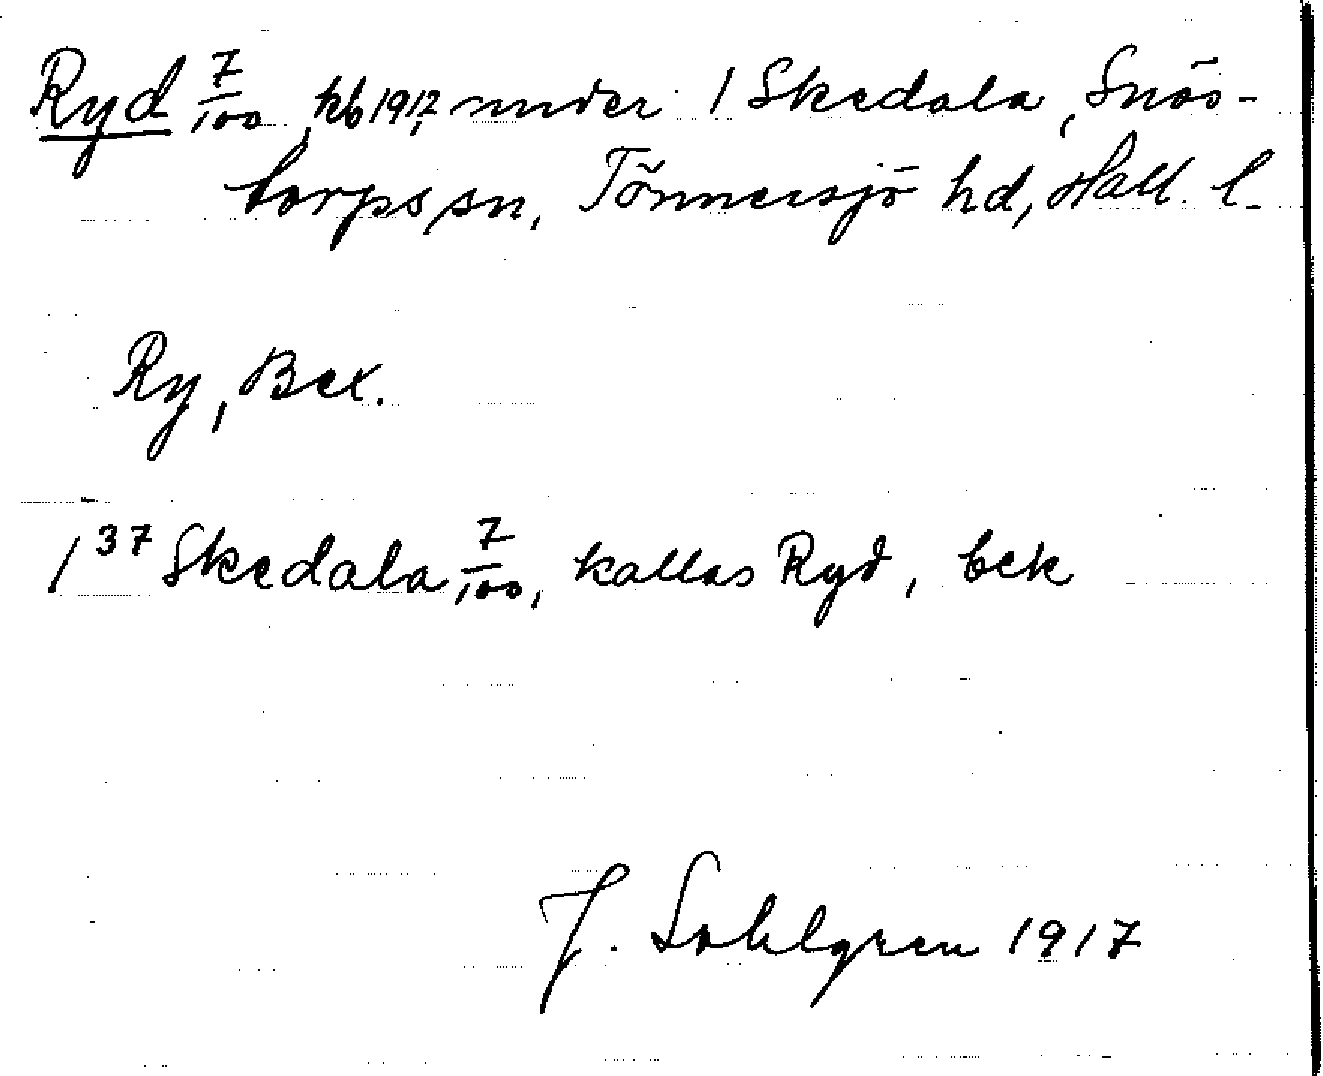 Ryd 7/100, kb 1917, under 1 Skedala, Snös-
torps sn, Tönnersjö hd, Hall. l.
Ry, Bex.
1³⁷ Skedala 7/100, kallas Ryd, bek
J. Sahlgren 1917